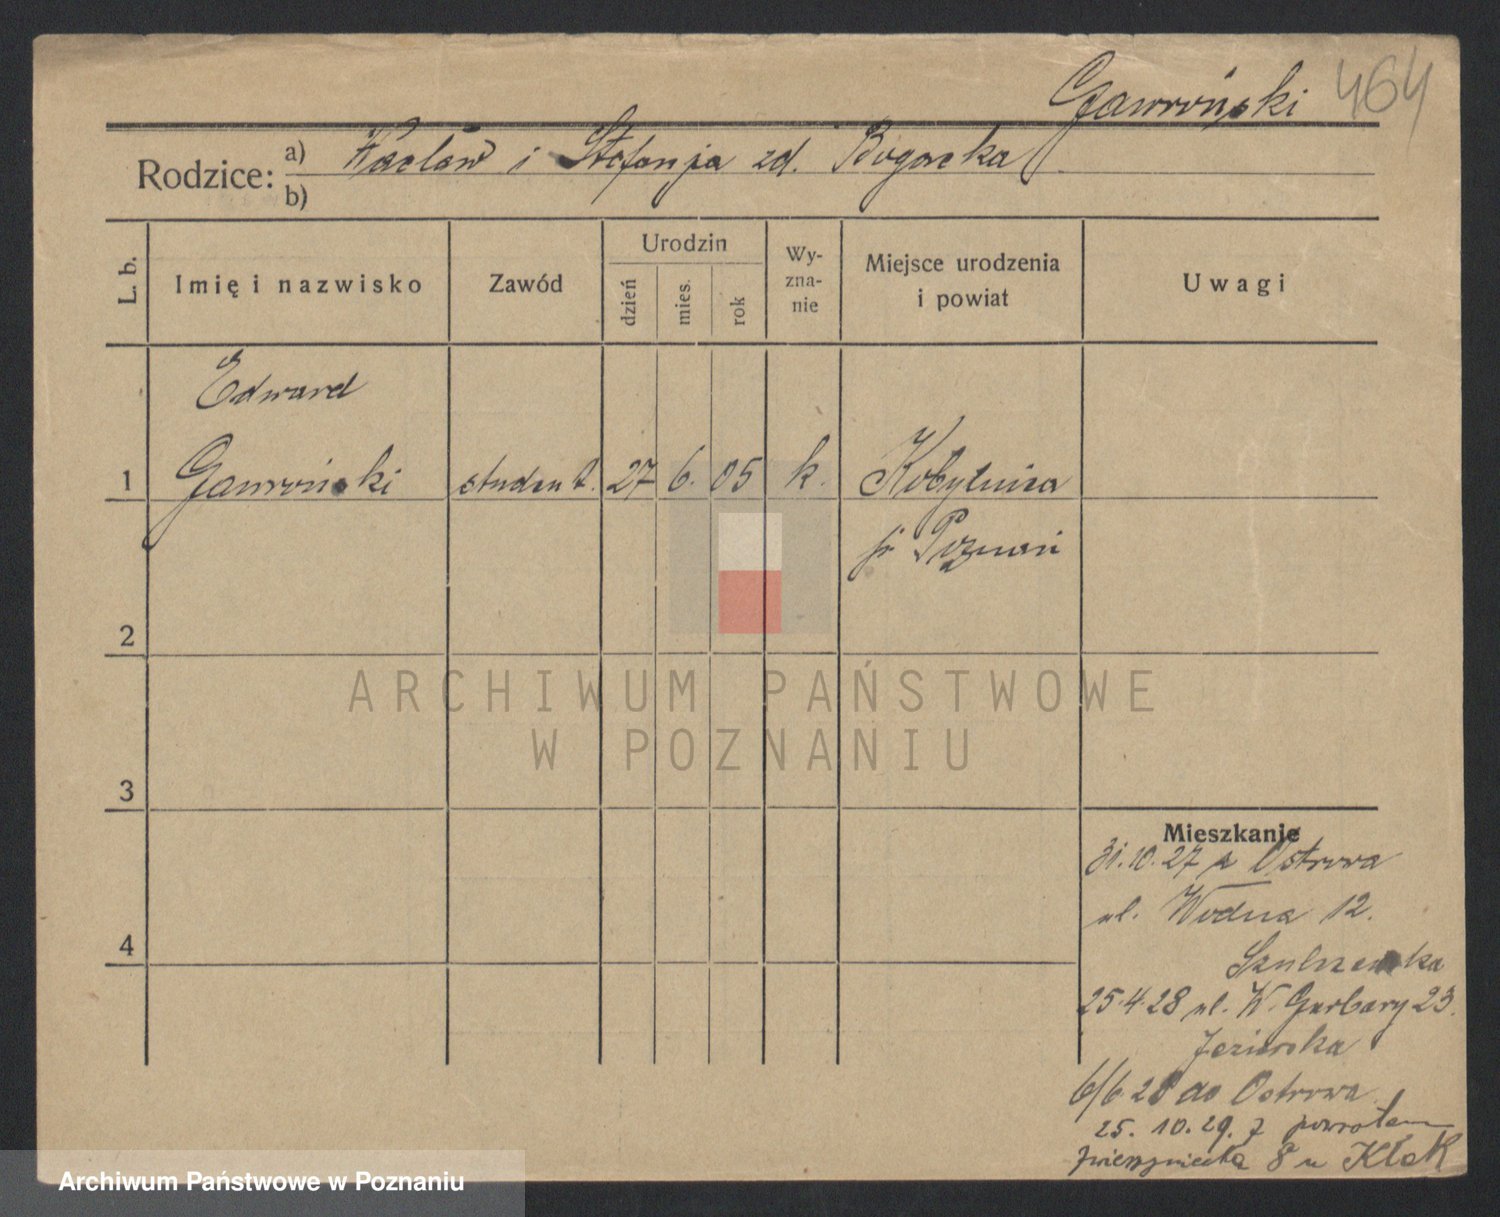 Gawroński 464
Rodzice: a) Wacław i Stefanja zd. Bogacka
b)
L. b. Imię i nazwisko Zawód Urodzin dzień mies. rok Wy-zna-nie Miejsce urodzenia i powiat Uwagi
Edward
1 Gawroński student. 27 6. 05 k. Kobylnica
p. Poznań
2
ARCHIWUM PAŃSTWOWE
W POZNANIU
3
Mieszkanie
31.10.27 z Ostrowa
ul. Wodna 12.
4
25.4.28 ul. W. Garbary 23.
6/6 28 do Ostrowa
25. 10. 29. z powrotem
Zwierzyniecka 8 u
Archiwum Państwowe w Poznaniu